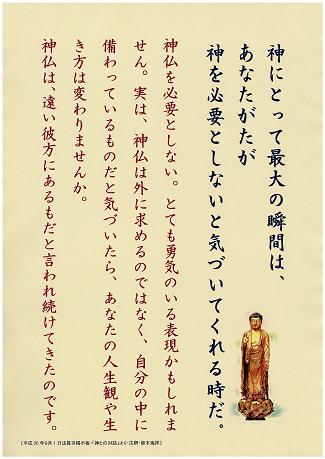 神にとって最大の瞬間は、
あなたがたが
神を必要としないと気づいてくれる時だ。
神仏を必要としない。とても勇気のいる表現かもしれま
せん。実は、神仏は外に求めるのではなく、自分の中に
備わっているものだと気づいたら、あなたの人生観や生
き方は変わりませんか。
神仏は、遠い彼方にあるものだと言われ続けてきたのです。